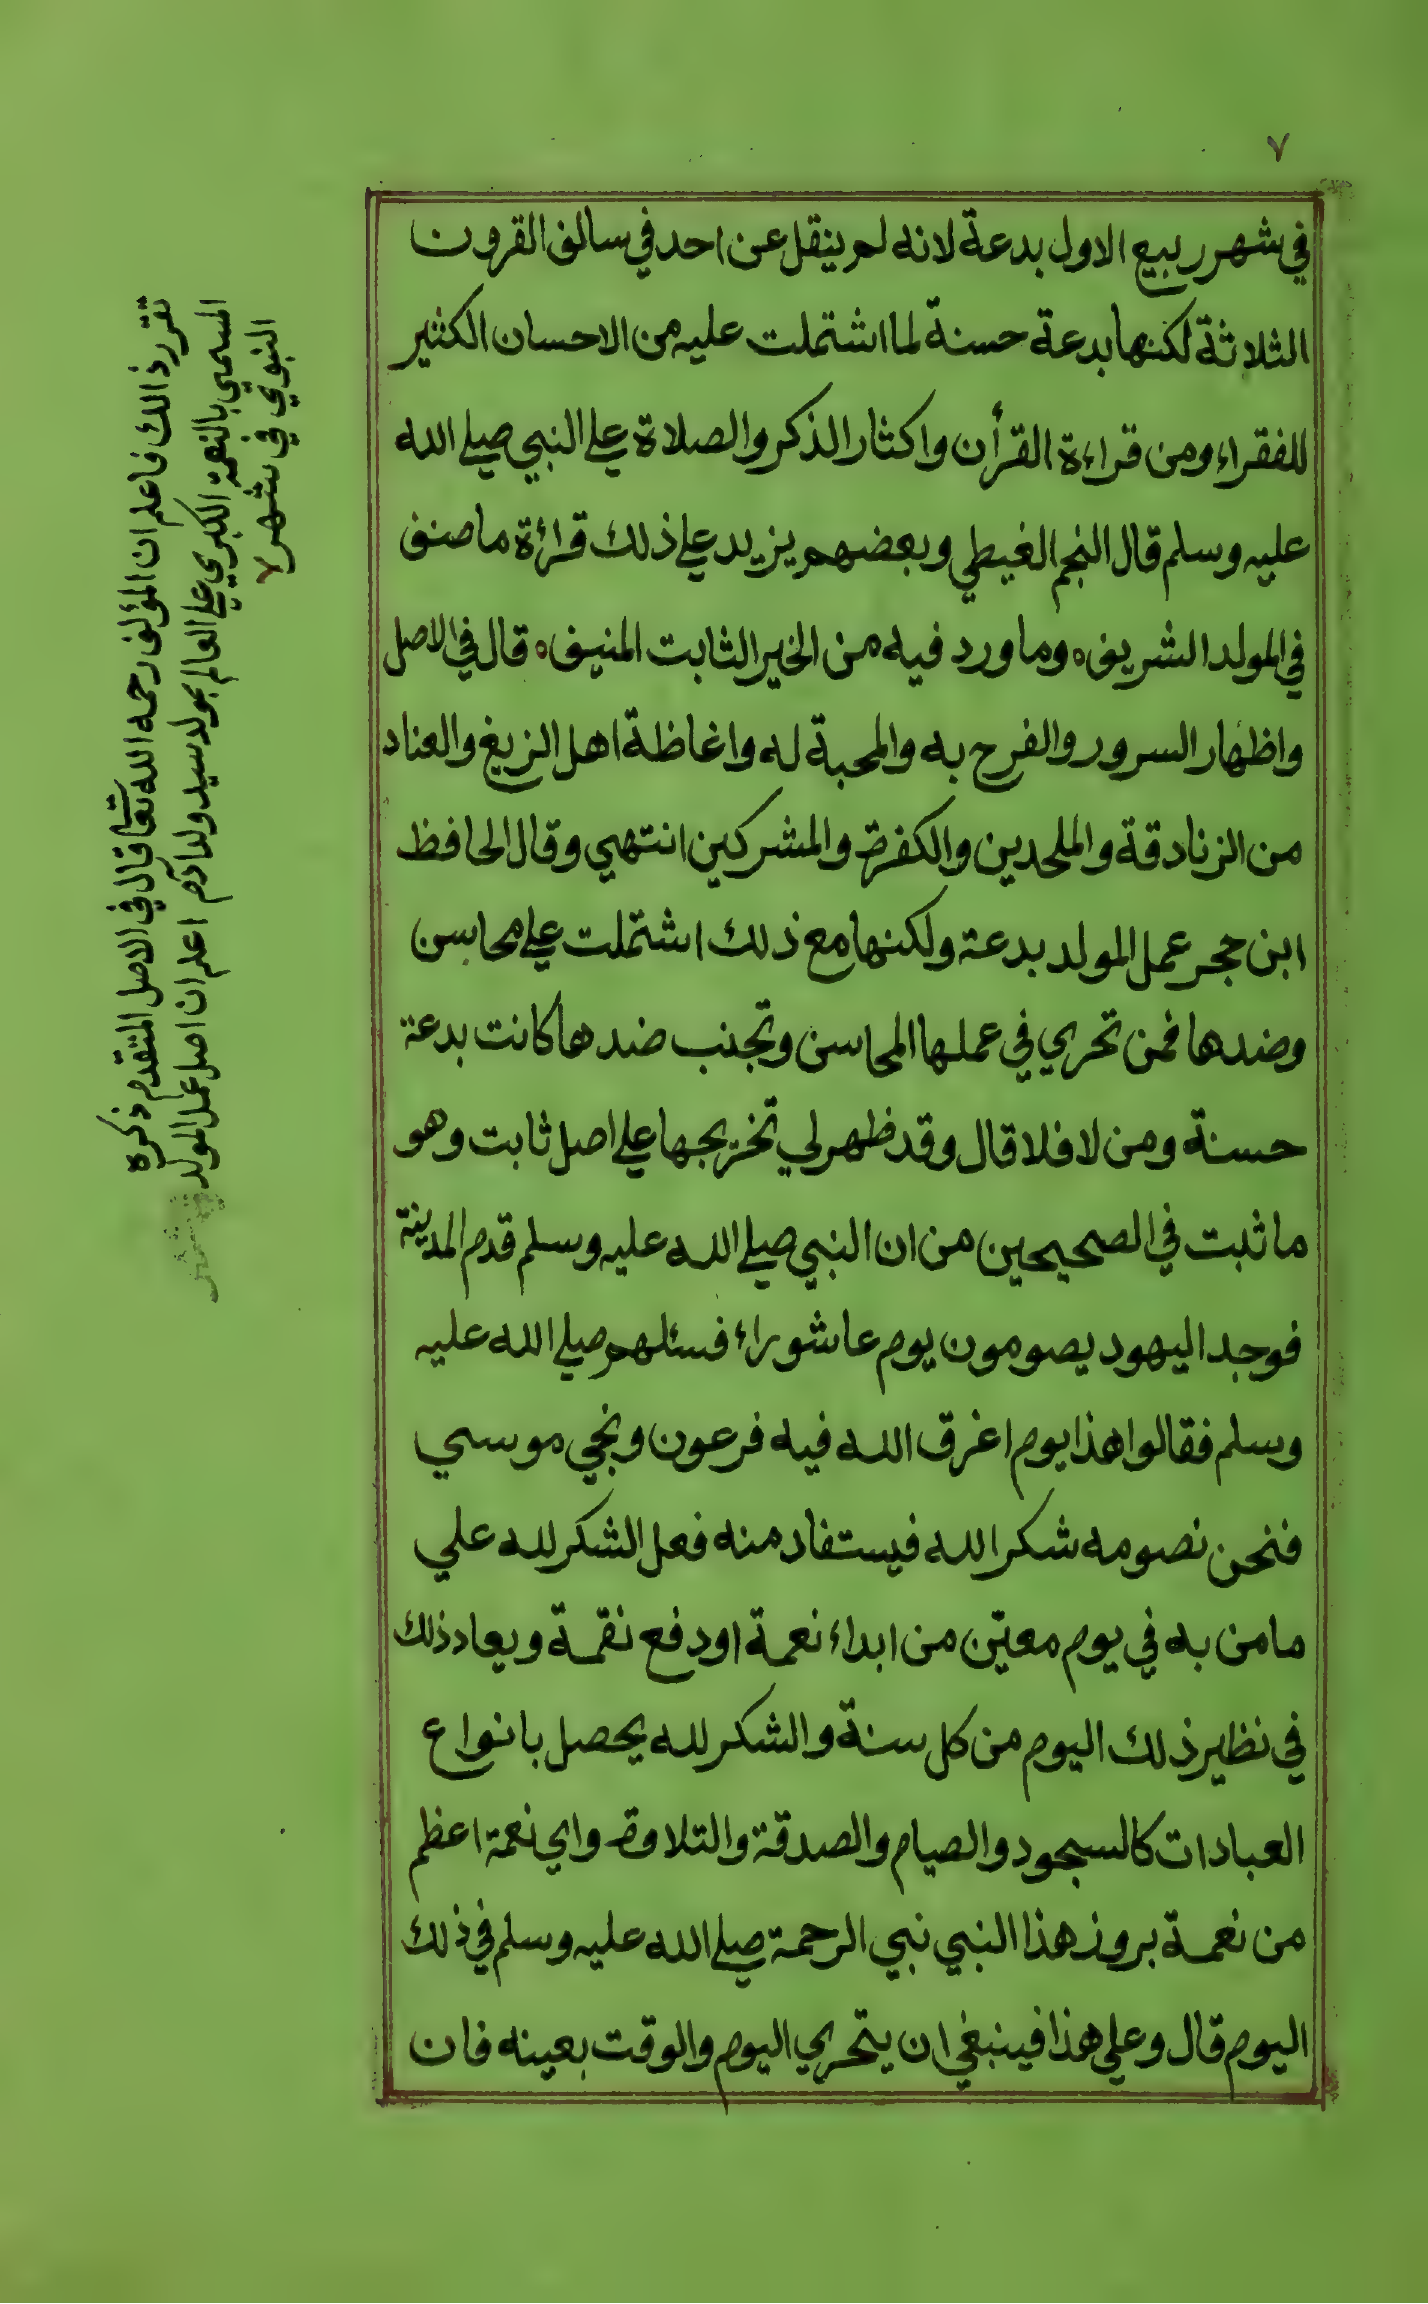 ٧
في شهر ربيع الاول بدعة لانه لم ينقل عن احد في سالف القرون
الثلاثة لكنها بدعة حسنة لما اشتملت عليه من الاحسان الكثير
للفقراء ومن قراءة القرأن واكثار الذكر والصلاة علي النبي صلي الله
عليه وسلم قال النجم الغيطي وبعضهم يزيد علي ذلك قرائة ما صنف
في المولد الشريف ه وما ورد فيه من الخير الثابت المنيف ه قال في الاصل
واظهار السرور والفرح به والمحبة له واغاظة اهل الزيغ والعناد
من الزنادقة والملحدين والكفرة والمشركين انتهي وقال الحافظ
ابن حجر عمل المولد بدعة ولكنها مع ذلك اشتملت علي محاسن
وضدها فمن تحري في عملها المحاسن وتجنب ضدها كانت بدعة
حسنة ومن لا فلا قال وقد ظهر لي تخريجها علي اصل ثابت وهو
ما ثبت في الصحيحين من ان النبي صلي الله عليه وسلم قدم المدينة
فوجد اليهود يصومون يوم عاشوراء فسئلهم صلي الله عليه
وسلم فقالوا هذا يوم اغرق الله فيه فرعون ونجي موسي
فنحن نصومه شكرا لله فيستفاد منه فعل الشكر لله علي
ما من به في يوم معين من ابداء نعمة او دفع نقمة ويعاد ذلك
في نظير ذلك اليوم من كل سنة والشكر لله يحصل بانواع
العبادات كالسجود والصيام والصدقة والتلاوة واي نعمة اعظم
من نعمة بروز هذا النبي نبي الرحمة صلي الله عليه وسلم في ذلك
اليوم قال وعلي هذا فينبغي ان يتحري اليوم والوقت بعينه فان
تقرر ذالك فاعلم ان المؤلف رحمه الله تعا قال في الاصل المتقدم ذكره
المسمي بالنعمة الكبري علي العالم بمولد سيد ولد آدم اعلم ان اصل عمل المولد
النبوي في شهر ٧